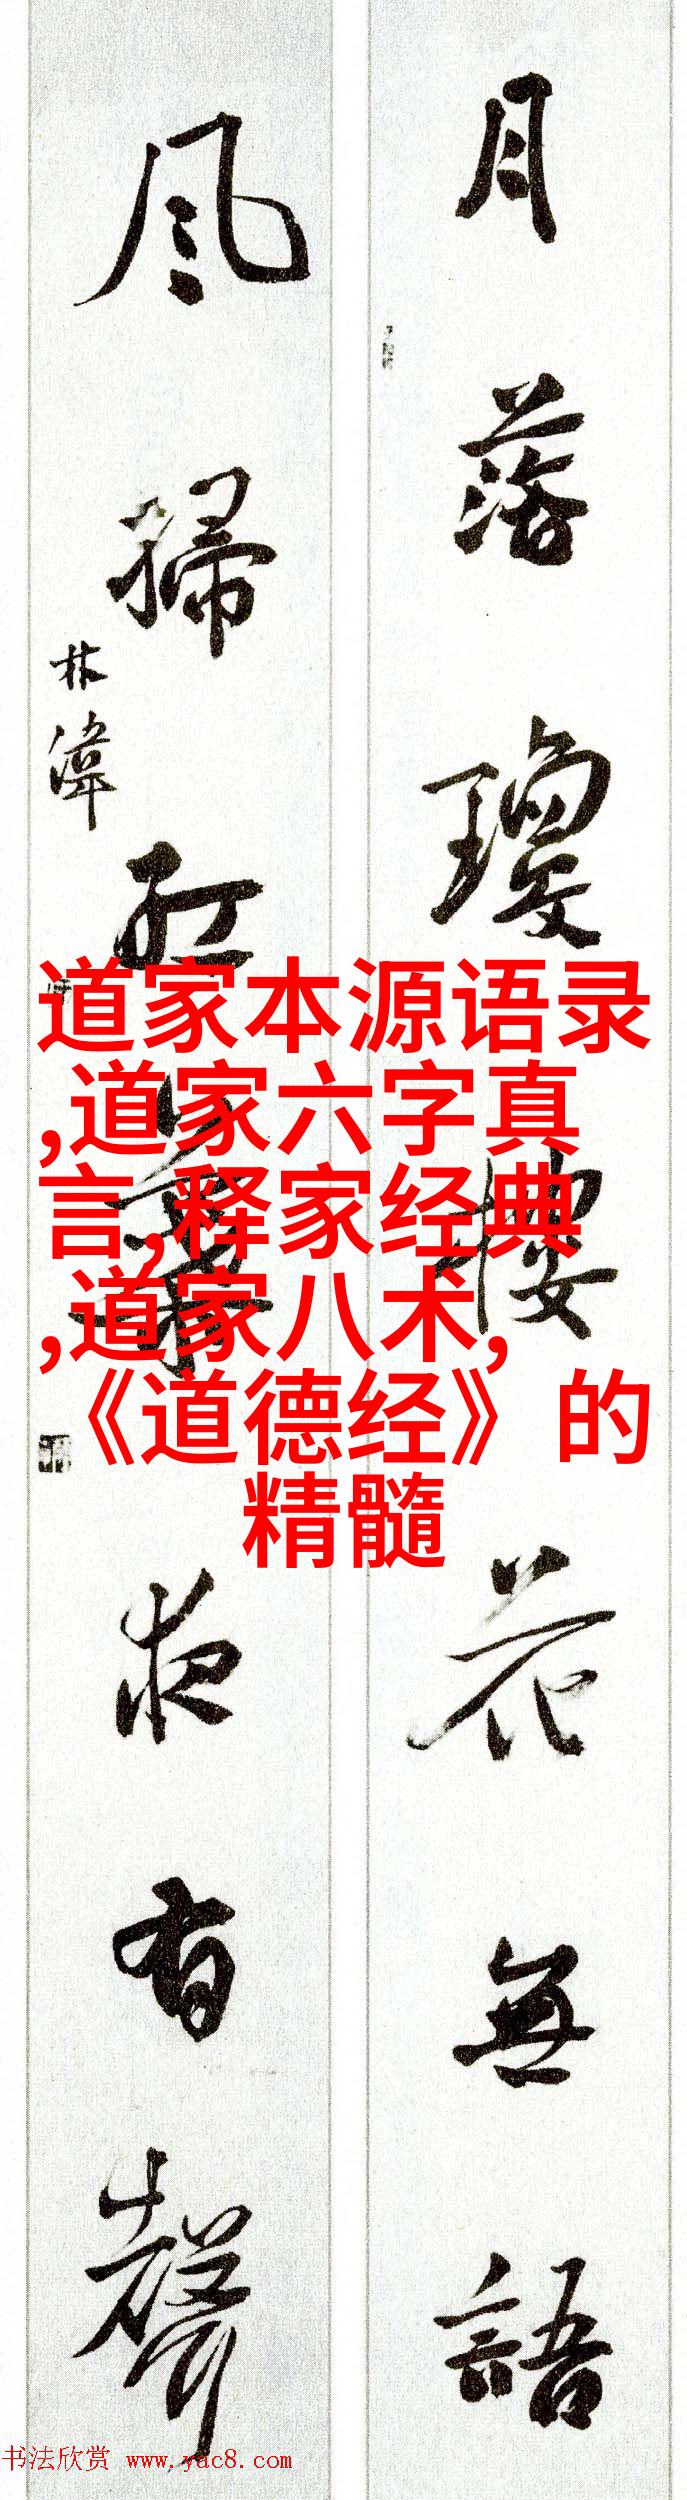 月落瓊樓花無語
風掃紅夜有聲
林
道家本源语录
,道家六字真
言,释家经典
,道家八术,
《道德经》的
精髓
书法欣赏 www.yac8.com